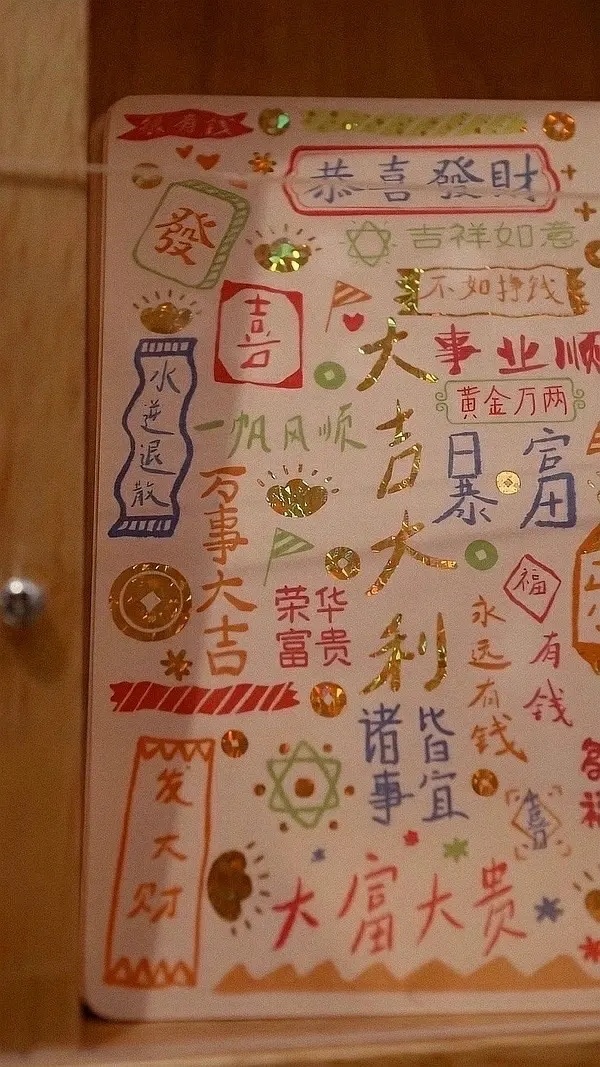 很有钱
恭喜發財
發
吉祥如意
不如挣钱
喜
大吉大利
事业顺
黄金万两
水逆退散
一帆风顺
日暴
富
万事大吉
荣华
富贵
福
永远有钱
有钱
诸事
皆宜
喜
发大财
大富大贵